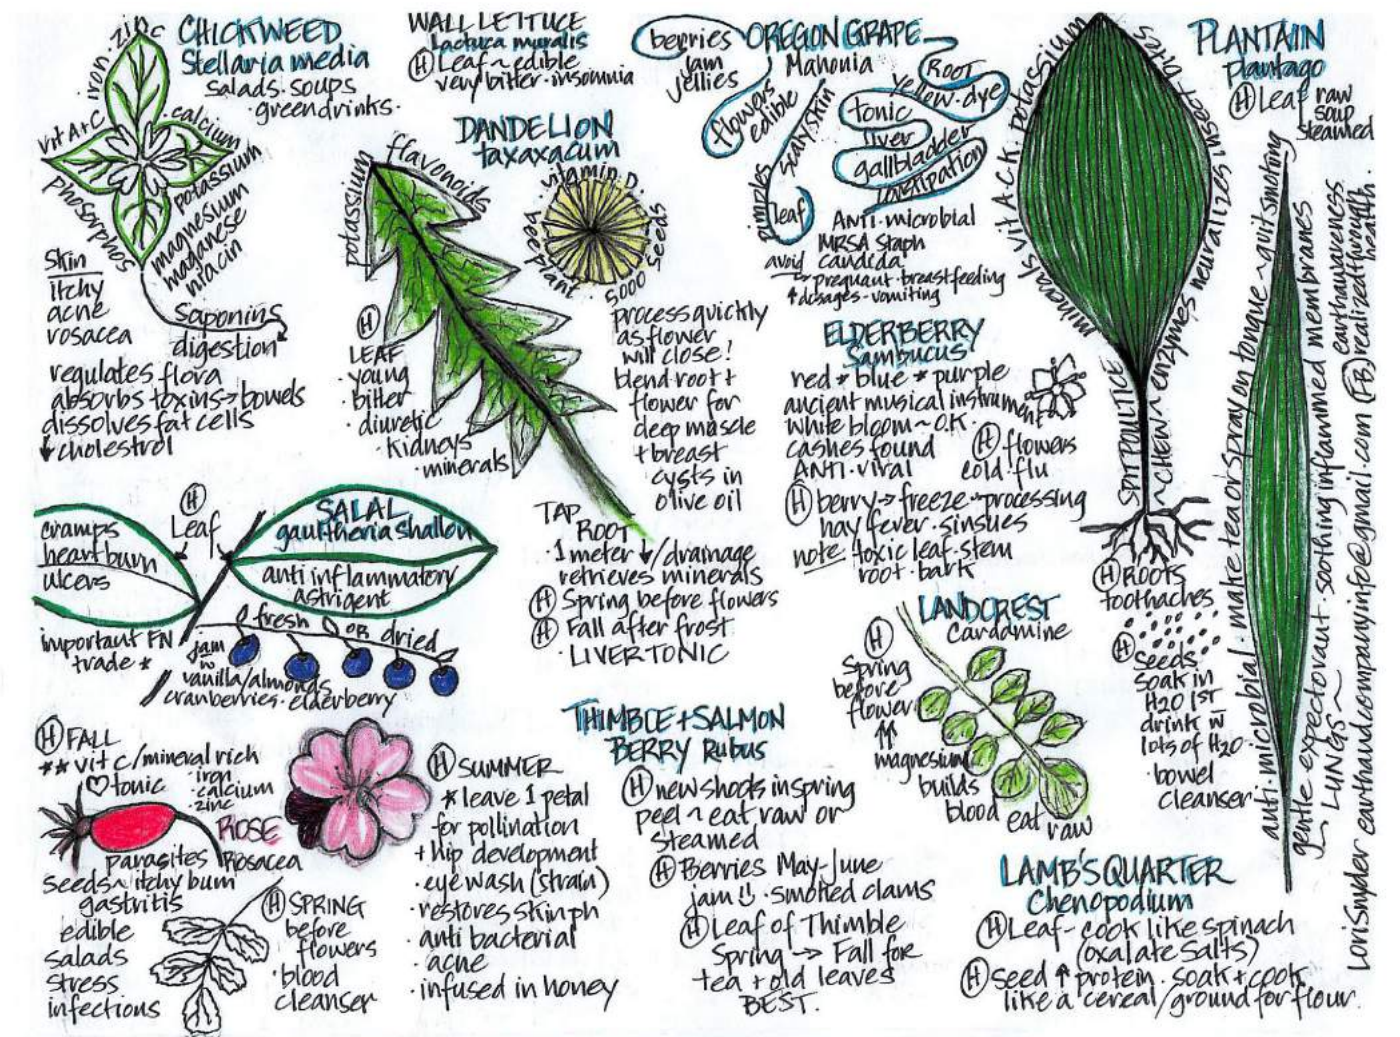 CHICKWEED
Stellaria media
salads · soups
· greendrinks ·
zinc
iron ·
vit A+C
calcium
potassium
phosorphos
magnesium
maganese
niacin
Skin
itchy
acne
rosacea
Saponins
digestion
regulates flora
absorbs toxins → bowels
dissolves fat cells
↓ cholestrol
WALL LETTUCE
Lactuca muralis
(H) Leaf ~ edible
very bitter · insomnia
DANDELION
taxaxacum
potassium
flavonoids
vitamin D.
bee plant
5000 seeds
(H)
LEAF
· young
· bitter
· diuretic
· kidneys
· minerals
process quickly
as flower
will close!
blend root +
flower for
deep muscle
+ breast
cysts in
olive oil
TAP
ROOT
· 1 meter ↓ / drainage
retrieves minerals
(H) Spring before flowers
(H) Fall after frost
· LIVER TONIC
OREGON GRAPE
Mahonia
berries
jam
jellies
flowers
edible
scaly skin
pimples
leaf
ROOT
yellow · dye
tonic
liver
gallbladder
constipation
ANTI · microbial
MRSA Staph
candida
avoid
→ pregnant · breastfeeding
↑ dosages · vomiting
ELDERBERRY
Sambucus
red * blue * purple
ancient musical instrument
white bloom ~ O.K.
cashes found
ANTI · viral
(H) flowers
cold · flu
(H) berry → freeze → processing
hay fever · sinsues
note: toxic leaf · stem
root · bark
PLANTAIN
plantago
(H) Leaf raw
soup
steamed
minerals vit A · C · K · potassium
SPIT POULTICE
~ chew ~ enzymes neutralizes insect bites
(H) ROOTS
toothaches
(H)
seeds
soak in
H2O 1ST
drink w
lots of H2O ·
· bowel
cleanser
anti · microbial · make tea or spray on tongue ~ quit smoking
gentle expectorant · soothing inflammed membranes
→ LUNGS ~
earthawareness
realizedthrough
health ·
LoriSnyder earthandcompanyinfo@gmail.com (FB)
SALAL
gaultheria shallon
(H)
Leaf
cramps
heartburn
ulcers
anti inflammatory
astrigent
important FN
trade *
fresh OR dried
jam
w
vanilla/almonds
cranberries · elderberry
LANDCREST
Cardamine
(H)
Spring
before
flower
↑↑
magnesium
builds
blood
eat raw
(H) FALL
** vit c / mineral rick
♡ tonic
· iron
· calcium
zinc
ROSE
Rosacea
parasites
seeds ~ itchy bum
gastritis
edible
salads
stress
infections
(H) SPRING
before
flowers
· blood
cleanser
(H) SUMMER
* leave 1 petal
for pollination
+ hip development
· eye wash (strain)
· restores skin ph
· anti bacterial
· acne
· infused in honey
THIMBLE + SALMON
BERRY Rubus
(H) new shoots in spring
peel ~ eat raw or
steamed
(H) Berries May-June
jam · smoked clams
(H) Leaf of Thimble
Spring → Fall for
tea + old leaves
BEST.
LAMB'S QUARTER
Chenopodium
(H) Leaf - cook like spinach
(oxalate salts)
(H) seed ↑ protein · soak + cook
like a cereal / ground for flour.